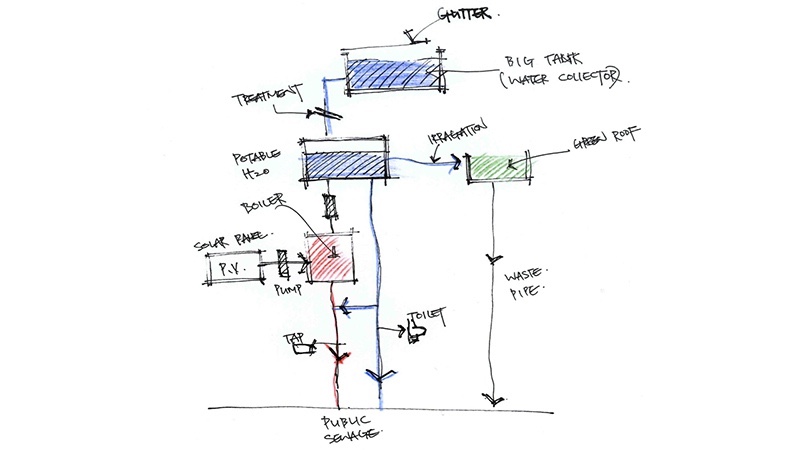 GUTTER.
BIG TANK
(WATER COLLECTOR).
TREATMENT
IRRAGATION
GREEN ROOF
POTABLE
H2O
BOILER
SOLAR PANEL.
P.V.
PUMP
WASTE
PIPE.
TOILET
TAP
PUBLIC
SEWAGE.